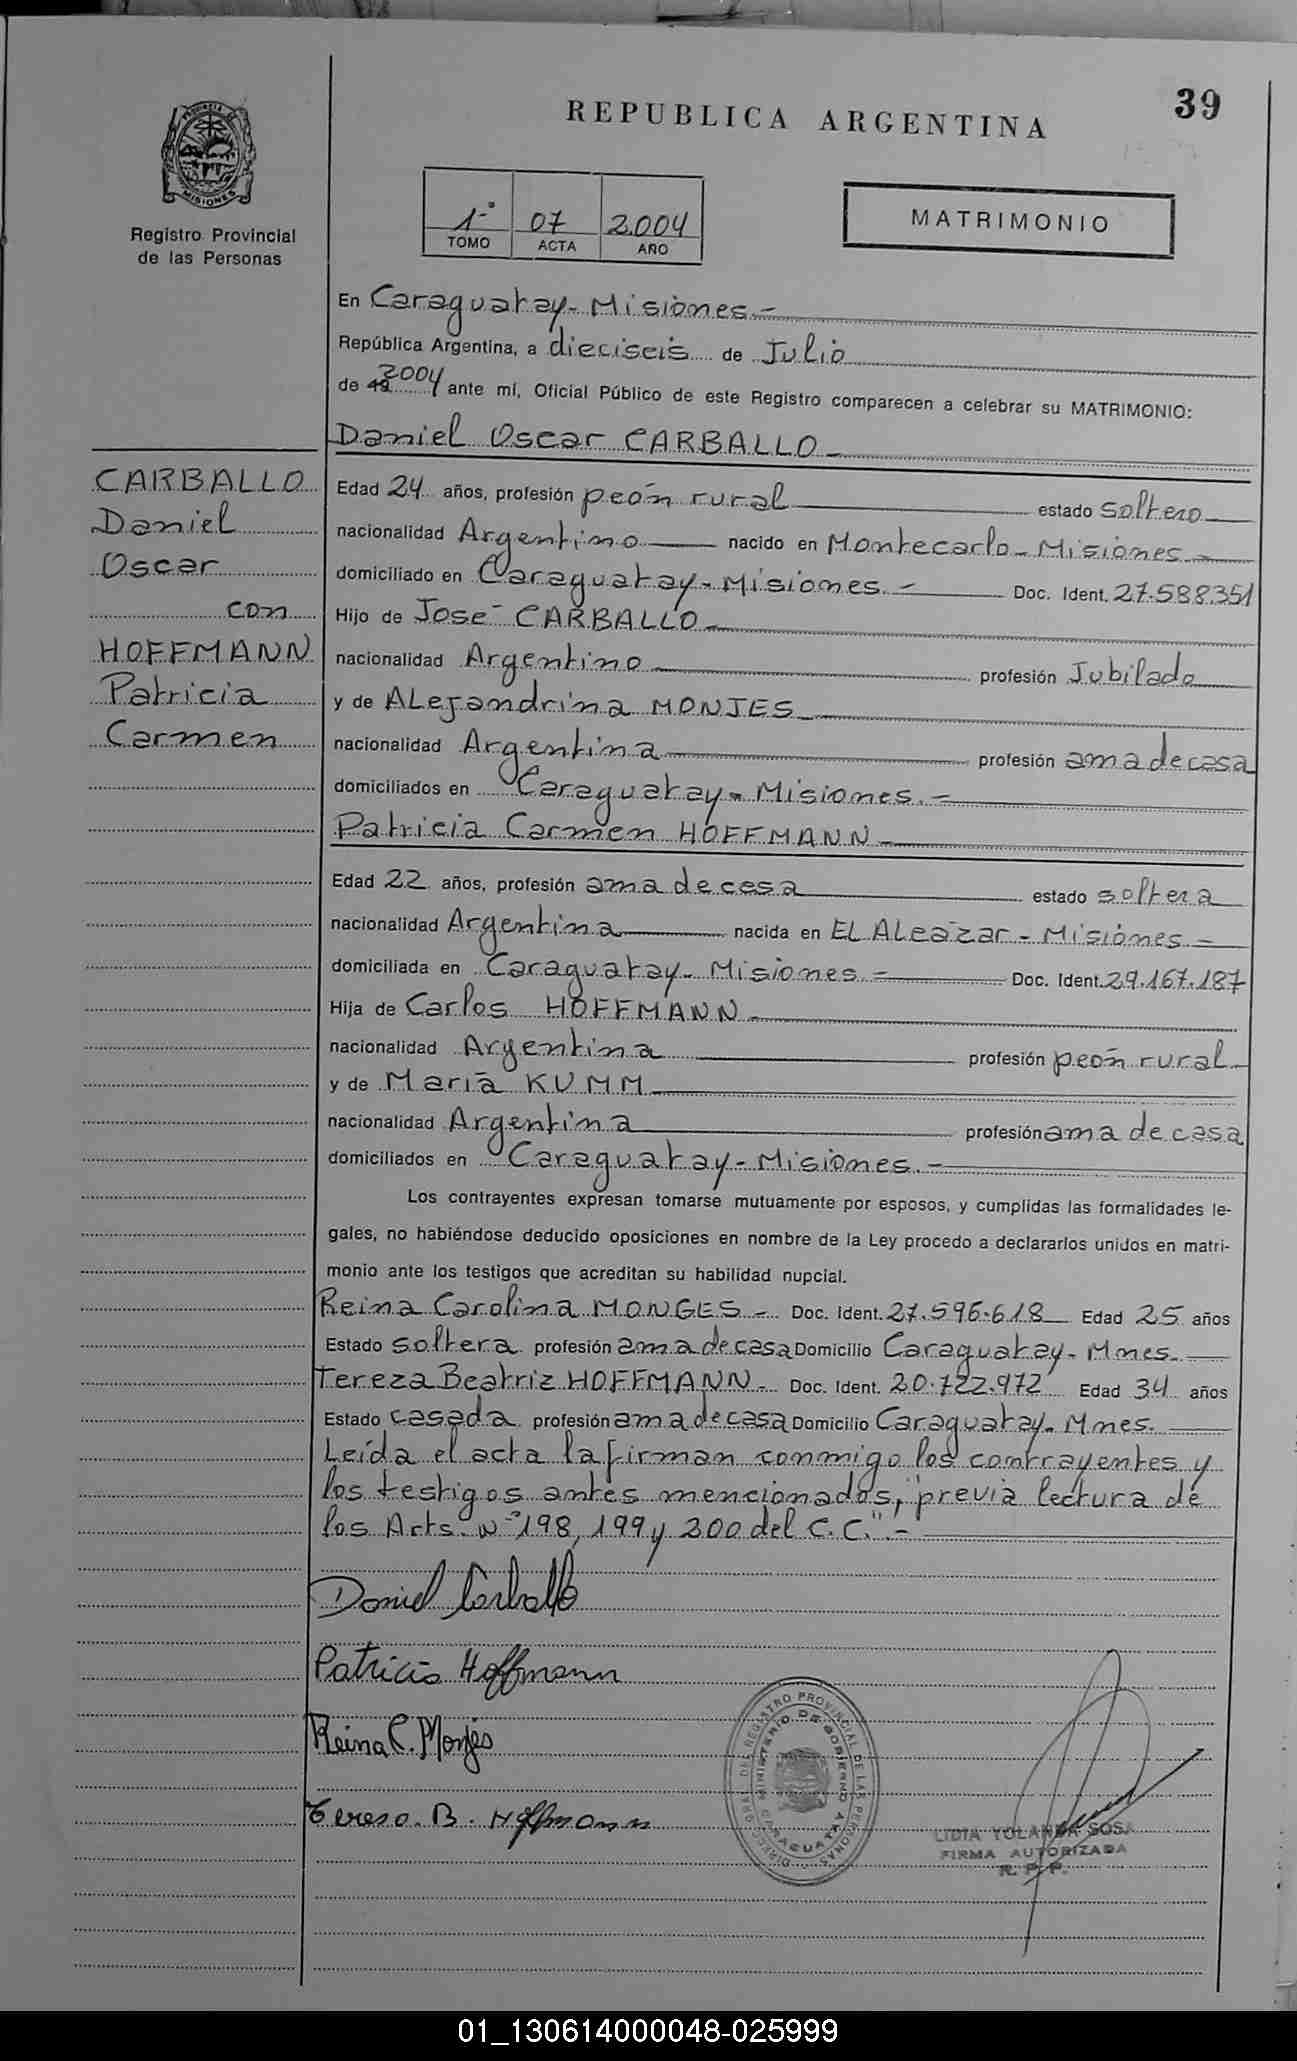 39
REPUBLICA ARGENTINA
PROVINCIA DE MISIONES
Registro Provincial
de las Personas
1º 07 2004
TOMO ACTA AÑO
MATRIMONIO
En Caraguatay-Misiones.-
República Argentina, a dieciseis de Julio
de 19 2004 ante mí, Oficial Público de este Registro comparecen a celebrar su MATRIMONIO:
Daniel Oscar CARBALLO.-
CARBALLO
Daniel
Oscar
con
HOFFMANN
Patricia
Carmen
Edad 24 años, profesión peón rural estado soltero
nacionalidad Argentino nacido en Montecarlo-Misiones.-
domiciliado en Caraguatay-Misiones.- Doc. Ident. 27.588.351
Hijo de José CARBALLO.-
nacionalidad Argentino profesión Jubilado
y de ALejandrina MONJES.-
nacionalidad Argentina profesión ama de casa
domiciliados en Caraguatay-Misiones.-
Patricia Carmen HOFFMANN.-
Edad 22 años, profesión ama de casa estado soltera
nacionalidad Argentina nacida en EL ALcázar-Misiones.-
domiciliada en Caraguatay-Misiones.- Doc. Ident. 29.167.187
Hija de Carlos HOFFMANN.-
nacionalidad Argentina profesión peón rural
y de María KUMM
nacionalidad Argentina profesión ama de casa
domiciliados en Caraguatay-Misiones.-
Los contrayentes expresan tomarse mutuamente por esposos, y cumplidas las formalidades le-
gales, no habiéndose deducido oposiciones en nombre de la Ley procedo a declararlos unidos en matri-
monio ante los testigos que acreditan su habilidad nupcial.
Reina Carolina MONGES.- Doc. Ident. 27.596.618 Edad 25 años
Estado soltera profesión ama de casa Domicilio Caraguatay-Mnes.
Tereza Beatriz HOFFMANN.- Doc. Ident. 20.722.972 Edad 34 años
Estado casada profesión ama de casa Domicilio Caraguatay-Mnes.
Leída el acta la firman conmigo los contrayentes y
los testigos antes mencionados, "previa lectura de
los Arts. Nº 198, 199 y 200 del C.C.".-
Daniel Carballo
Patricia Hoffmann
Reina C. Monjes
Tereso. B. Hoffmann
DIREC. GRAL. DEL REGISTRO PROVINCIAL DE LAS PERSONAS
MINISTERIO DE GOBIERNO
CARAGUATAY
LIDIA YOLANDA SOSA
FIRMA AUTORIZADA
R. P. P.
01_130614000048-025999